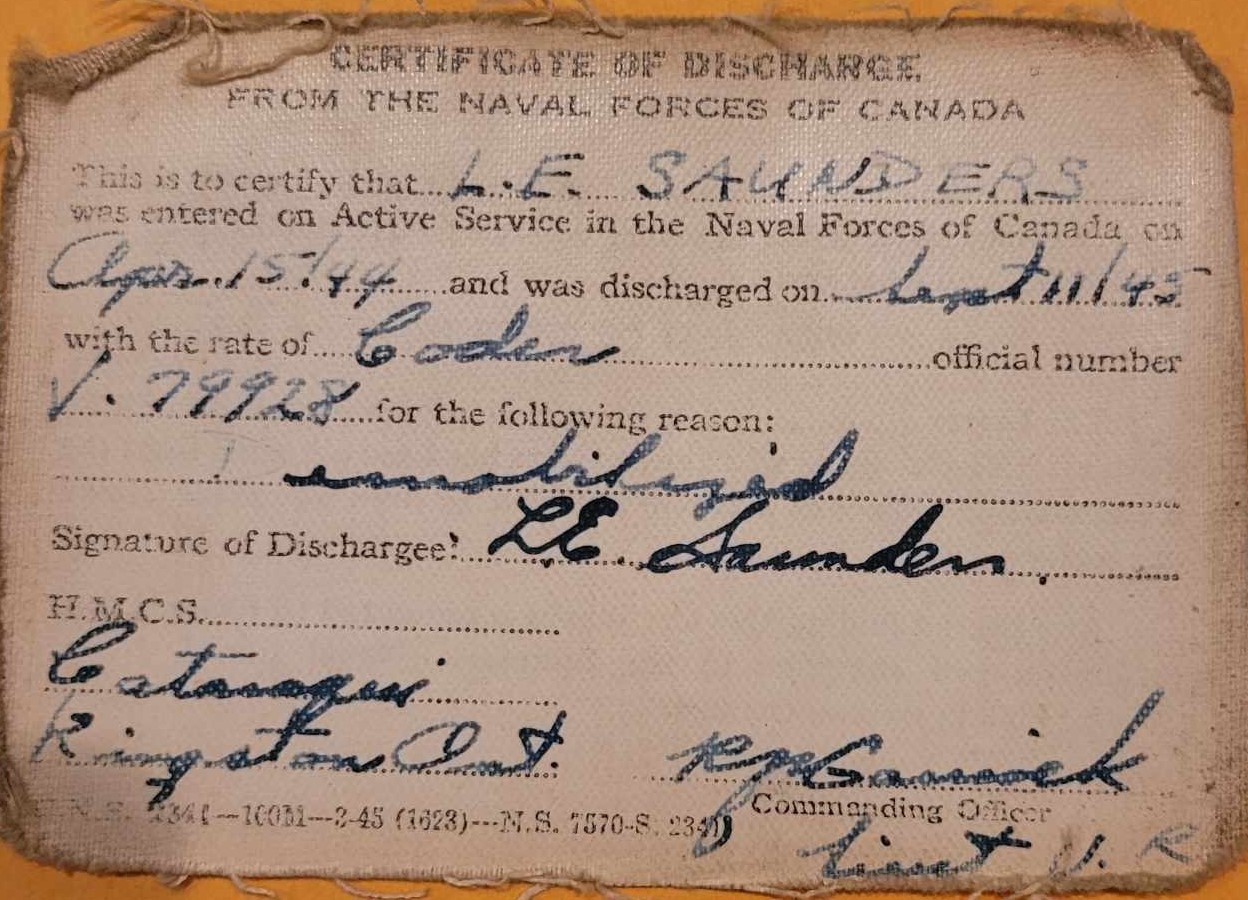 CERTIFICATE OF DISCHARGE
FROM THE NAVAL FORCES OF CANADA
This is to certify that L.E. SAUNDERS
was entered on Active Service in the Naval Forces of Canada on
Apr. 15/44 and was discharged on Sept 11/45
with the rate of Coder official number
V. 79928 for the following reason:
Demobilized
Signature of Dischargee: L.E. Saunders
H.M.C.S.
Cataraqui
Kingston Ont.
Commanding Officer
100M--3-45 (1623)---N.S. 7570-S. 2341)
Lieut